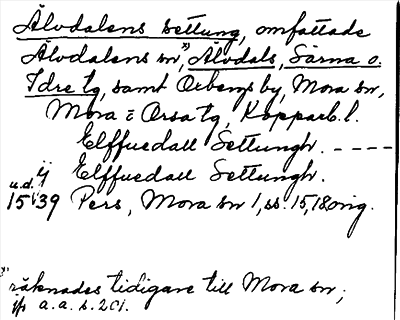 Älvdalens settung, omfattade
Älvdalens sn,*) Älvdals, Särna o.
Idre tg, samt Orbens by, Mora sn,
Mora o Orsa tg, Kopparb. l.
Elffuedall Settungh. -----
ij Elffuedall Settungh.
u.d.
15 39 Pers, Mora sn 1, ss. 15, 18 orig.
*) räknades tidigare till Mora sn;
jfr a.a. s. 201.